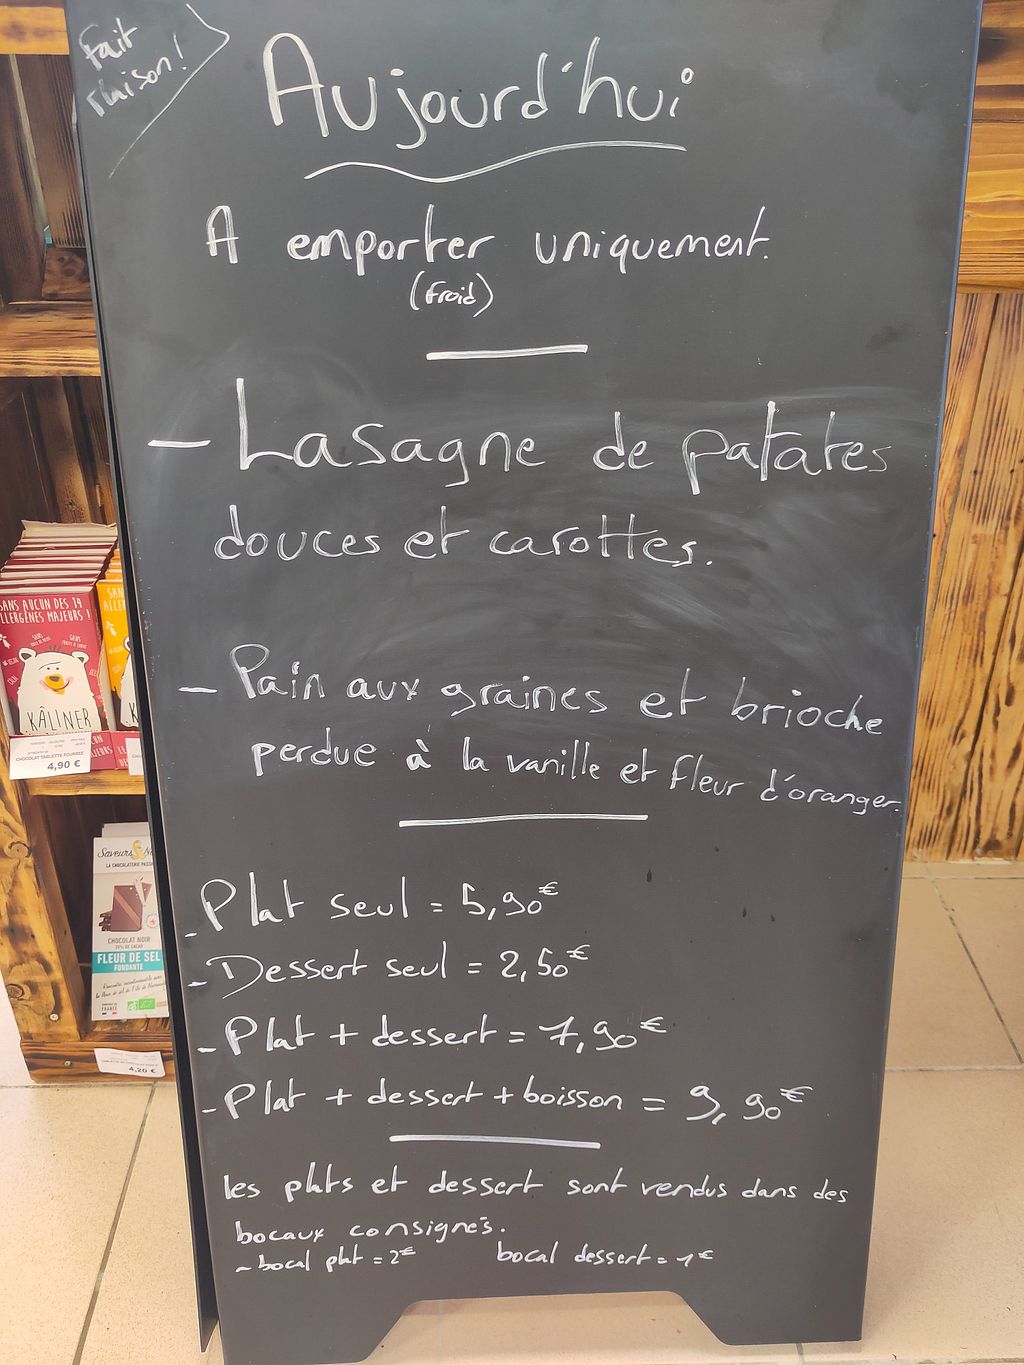 Fait
maison !
Aujourd'hui
A emporter uniquement.
(froid)
- Lasagne de patates
douces et carottes.
- Pain aux graines et brioche
perdue à la vanille et fleur d'oranger.
- Plat seul = 5,90€
- Dessert seul = 2,50€
- Plat + dessert = 7,90€
- Plat + dessert + boisson = 9,90€
les plats et dessert sont vendus dans des
bocaux consignés.
- bocal plat = 2€ bocal dessert = 1€
SANS AUCUN DES 14
ALLERGÈNES MAJEURS !
KÂLINER
CHOCOLAT TABLETTE FOURREE
4,90 €
Saveurs &
LA CHOCOLATERIE
CHOCOLAT NOIR
FLEUR DE SEL
FONDANTE
FRANCE
4,20 €